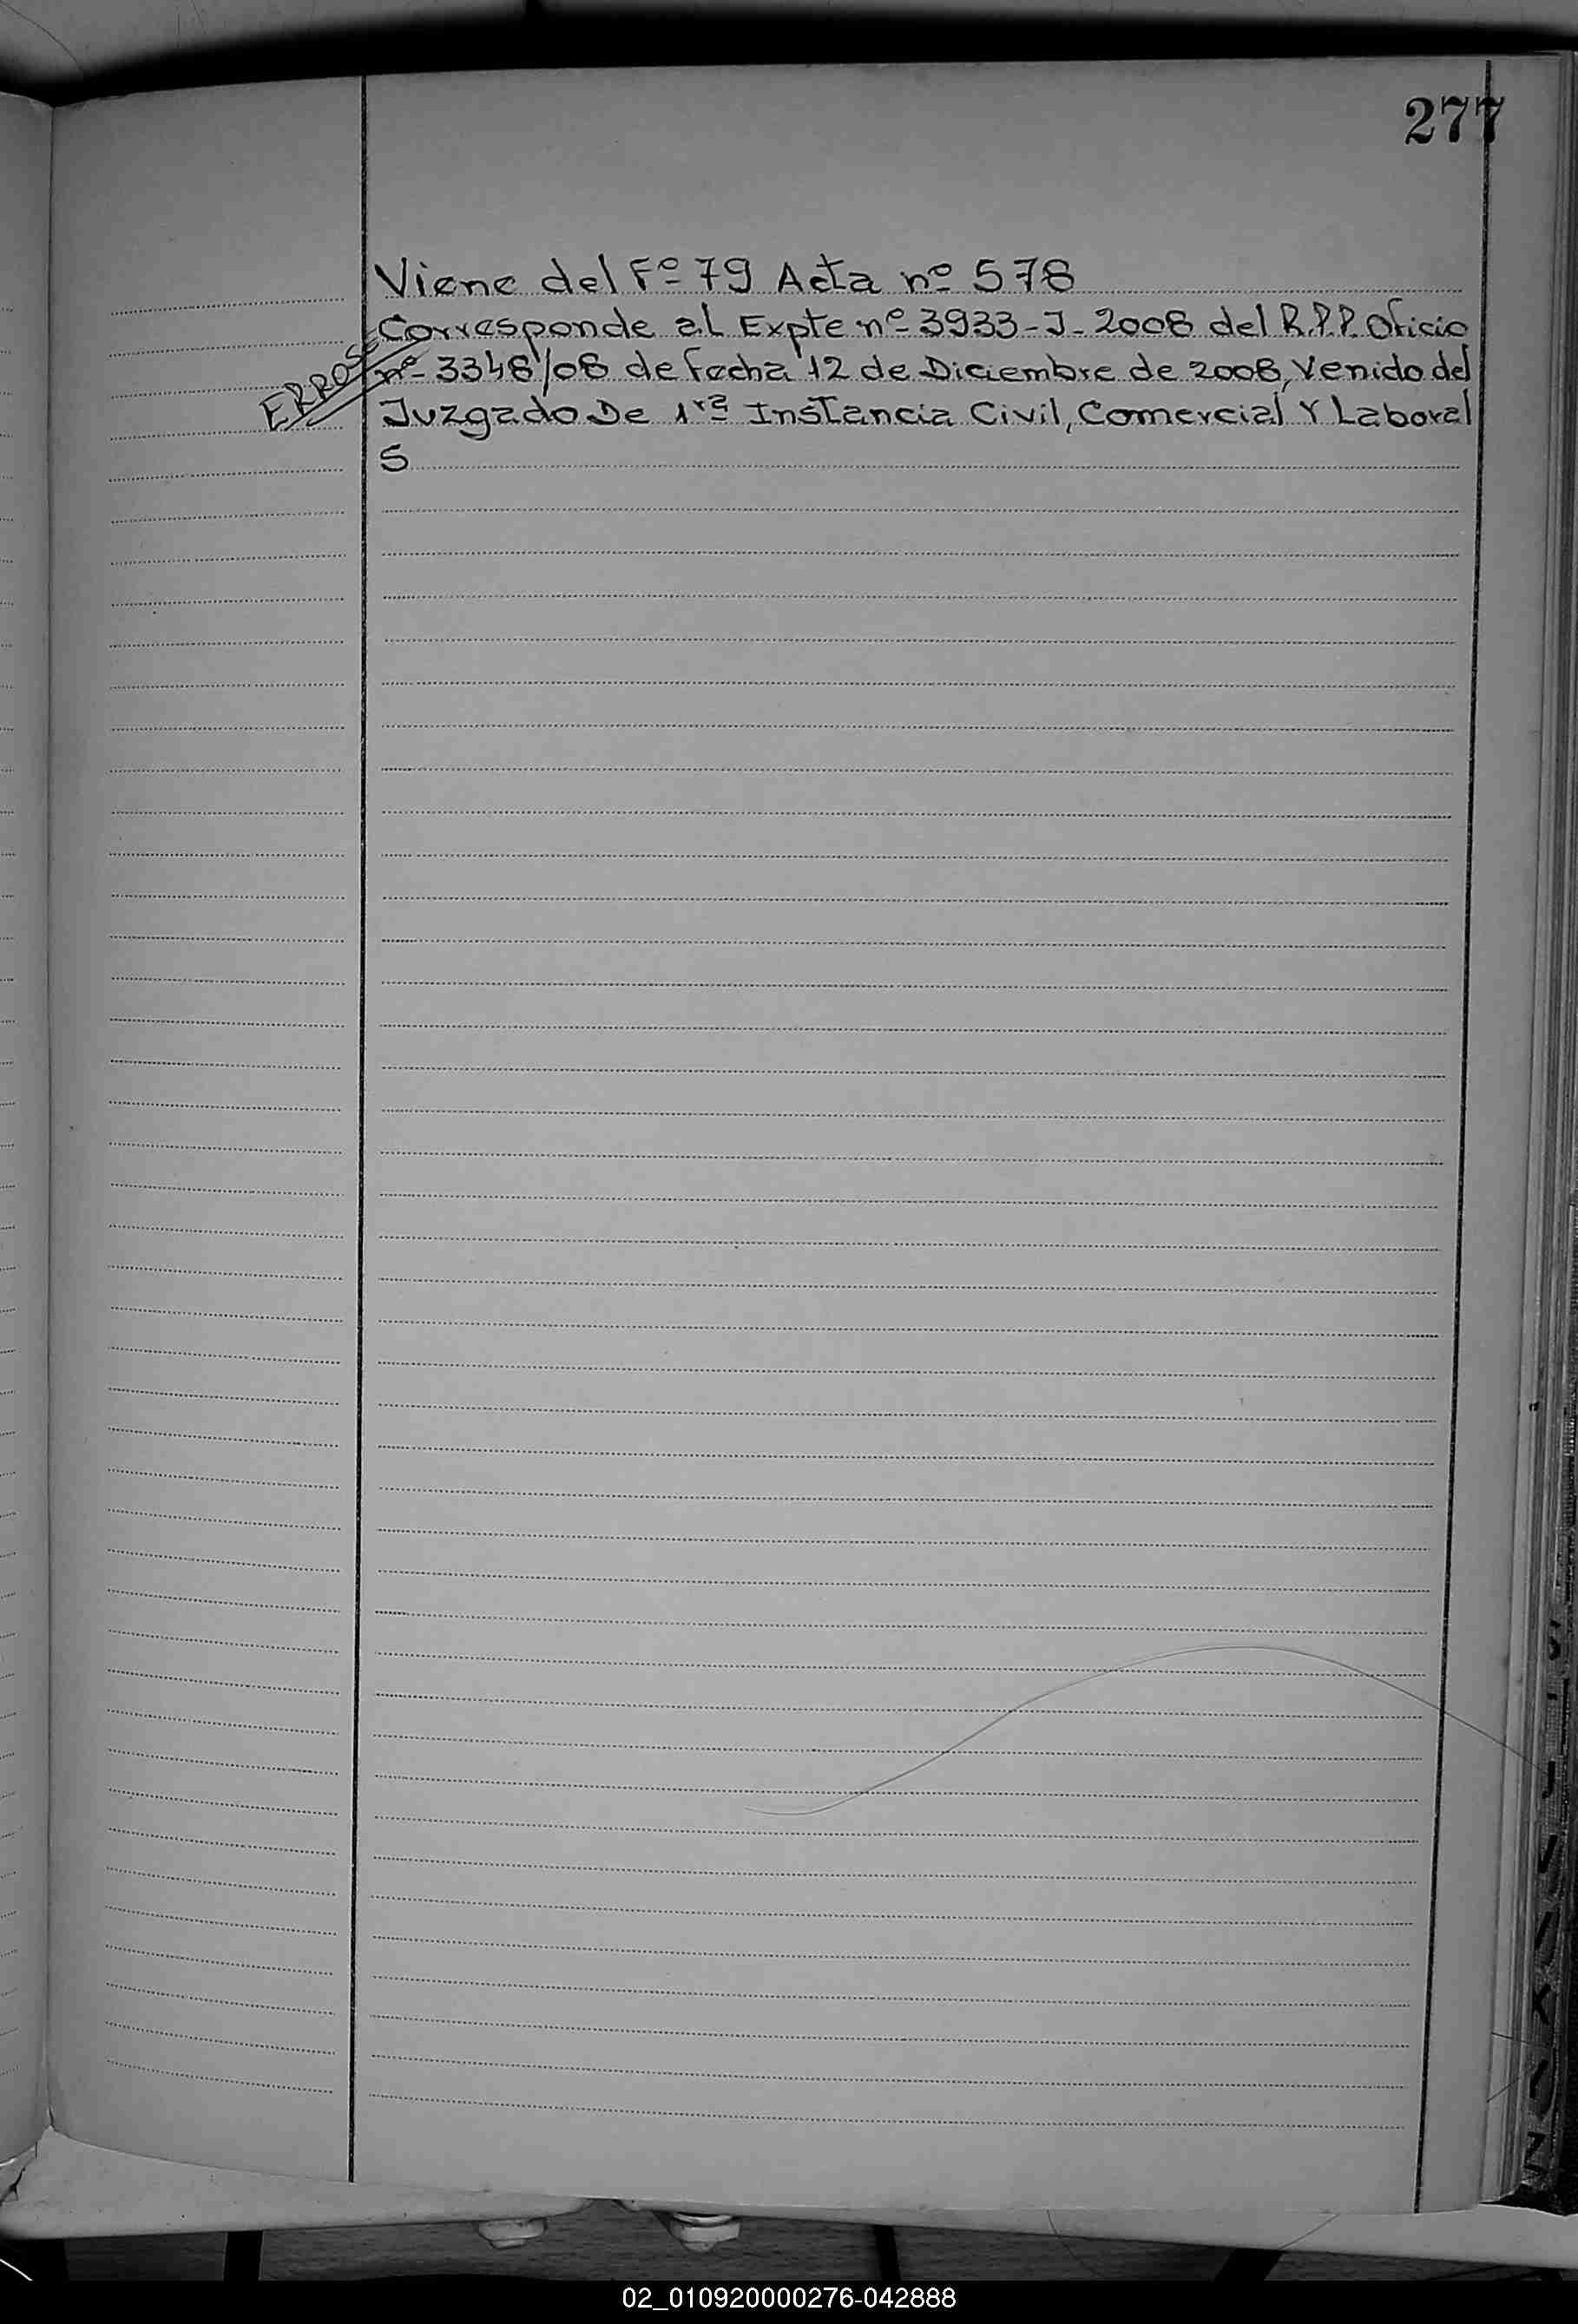 277
Viene del Fº 79 Acta nº 578
Corresponde al Expte nº 3933-J-2008 del R.P.P. Oficio
nº 3348/08 de fecha 12 de Diciembre de 2008, Venido del
Juzgado De 1ra Instancia Civil, Comercial Y Laboral
S
ERROSE
02_010920000276-042888